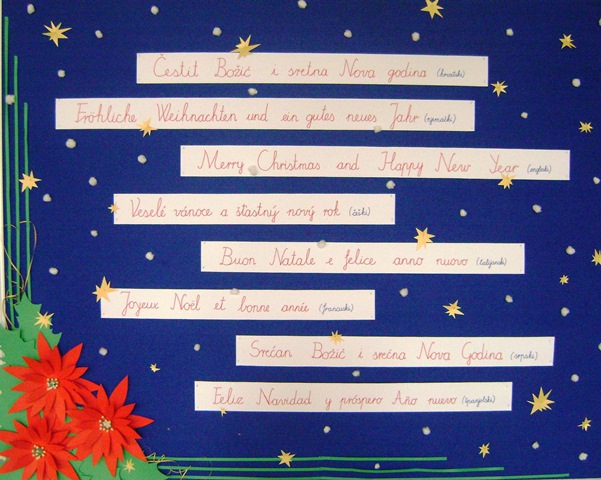 Čestit Božić i sretna Nova godina (hrvatski)
Fröhliche Weihnachten und ein gutes neues Jahr (njemački)
Merry Christmas and Happy New Year (engleski)
Veselé vánoce a štastný nový rok (češki)
Buon Natale e felice anno nuovo (talijanski)
Joyeux Noël et bonne année (francuski)
Srećan Božić i srećna Nova Godina (srpski)
Feliz Navidad y próspero Año nuevo (španjolski)